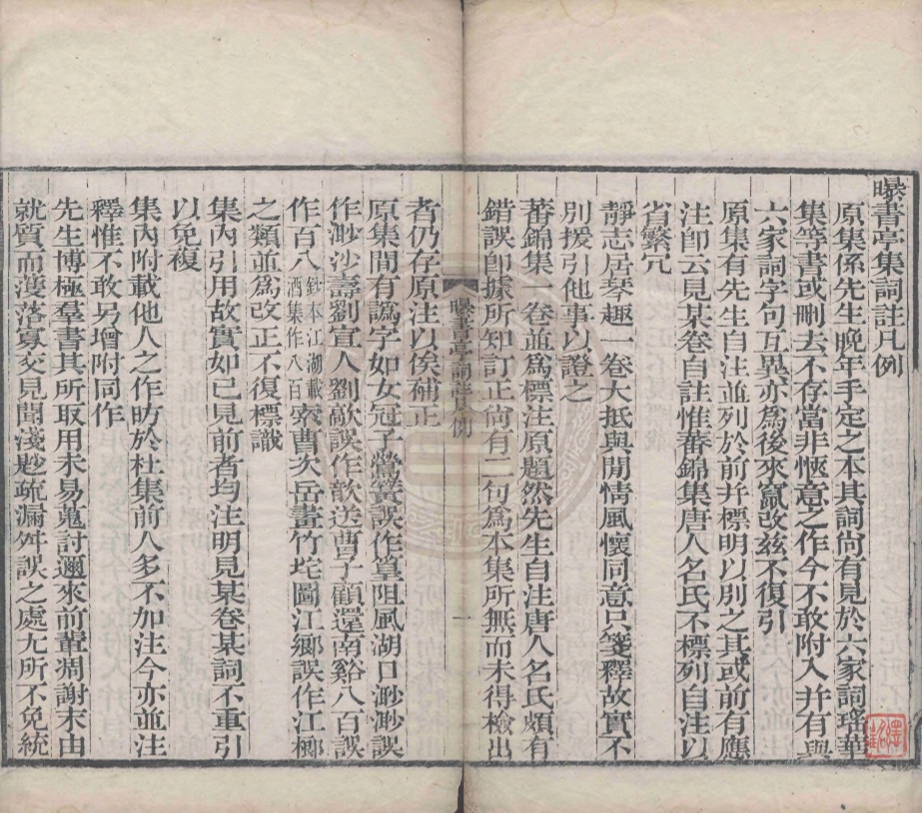 曝書亭集詞註凡例
原集係先生晚年手定之本其詞尚有見於六家詞瑤華
集等書或刪去不存當非愜意之作今不敢附入并有與
六家詞字句互異亦為後來竄改茲不復引
原集有先生自注並列於前并標明以別之其或前有應
注卽云見某卷自註惟蕃錦集唐人名氏不標列自注以
省繁冗
靜志居琴趣一卷大抵與閒情風懷同意只箋釋故實不
別援引他事以證之
蕃錦集一卷並為標注原題然先生自注唐人名氏頗有
錯誤卽據所知訂正尚有二句為本集所無而未得檢出
曝書亭詞註凡例
一
者仍存原注以俟補正
原集間有譌字如女冠子鶯簧誤作篁阻風湖口渺渺誤
作渺沙壽劉宣人劉歊誤作歆送曹子顧還南谿八百誤
作百八鈔本江湖載酒集作八百索曹次岳畫竹垞圖江鄉誤作江櫛
之類並為改正不復標識
集內引用故實如已見前者均注明見某卷某詞不重引
以免複
集內附載他人之作昉於杜集前人多不加注今亦並注
釋惟不敢另增附同作
先生博極羣書其所取用未易蒐討邇來前輩凋謝末由
就質而濩落寡交見聞淺尠疏漏舛誤之處尤所不免統